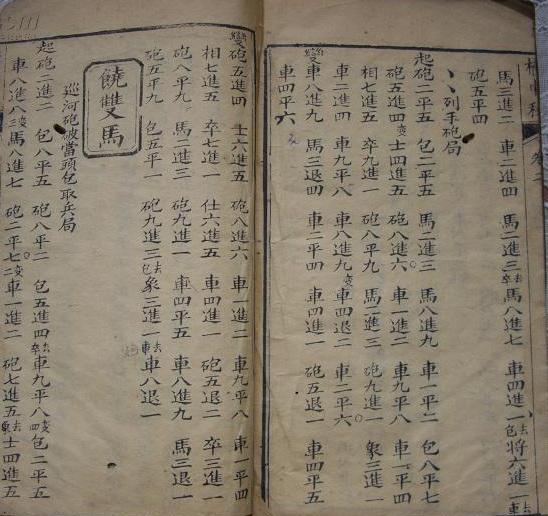 馬三進二 車二進四 馬二進三去卒 馬八進七 車四進一去包 將六進一去車
砲五平四
列手砲局
起砲二平五 包二平五 馬二進三 馬八進九 車一平二 包八平七
砲五進四变 士四進五 砲八進六 車一進二 車九平八 車一平四
相七進五 卒七進一 砲八平九 馬二進三 砲九進一 象三進一
車二進四 車九平八 車八進九变 車四退二 車二平六
變車八進九 馬三退四 車二平四 車四進一 砲五退一 車四平五
車四平六
變砲五進四 士六進五 砲八進六 車一進二 車九平八 車一平四
相七進五 卒七進一 仕六進五 車四進一 砲五退二 卒三進一
砲八平九 馬二進三 砲九進一 車四平五 車八進九 馬三退一
砲五平九 包五平一 砲九進三去包 象三進一去車 車八退一
饒雙馬
巡河砲破當頭包取兵局
起砲二進二 包八平五 砲八平二 包五進四去卒 車九平八变四 包二平五
車八進八变三 馬八進七 砲二平七变二 車一進二 砲七進五去象 士四進五